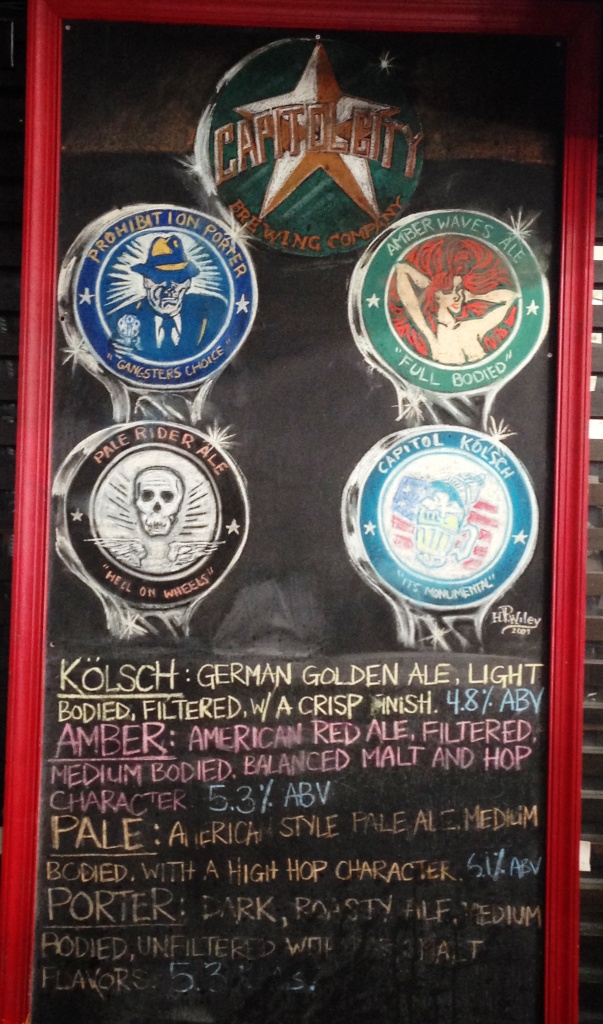 CAPITOL CITY
BREWING COMPANY
PROHIBITION PORTER
"GANGSTERS CHOICE"
AMBER WAVES ALE
"FULL BODIED"
PALE RIDER ALE
"HELL ON WHEELS"
CAPITOL KÖLSCH
"ITS MONUMENTAL"
2001
KÖLSCH: GERMAN GOLDEN ALE, LIGHT
BODIED, FILTERED, W/ A CRISP FINISH. 4.8% ABV
AMBER: AMERICAN RED ALE, FILTERED,
MEDIUM BODIED. BALANCED MALT AND HOP
CHARACTER 5.3% ABV
PALE: AMERICAN STYLE PALE ALE, MEDIUM
BODIED, WITH A HIGH HOP CHARACTER. 6.1% ABV
PORTER: DARK, ROASTY ALE, MEDIUM
BODIED, UNFILTERED WITH MALT
FLAVORS. 5.3